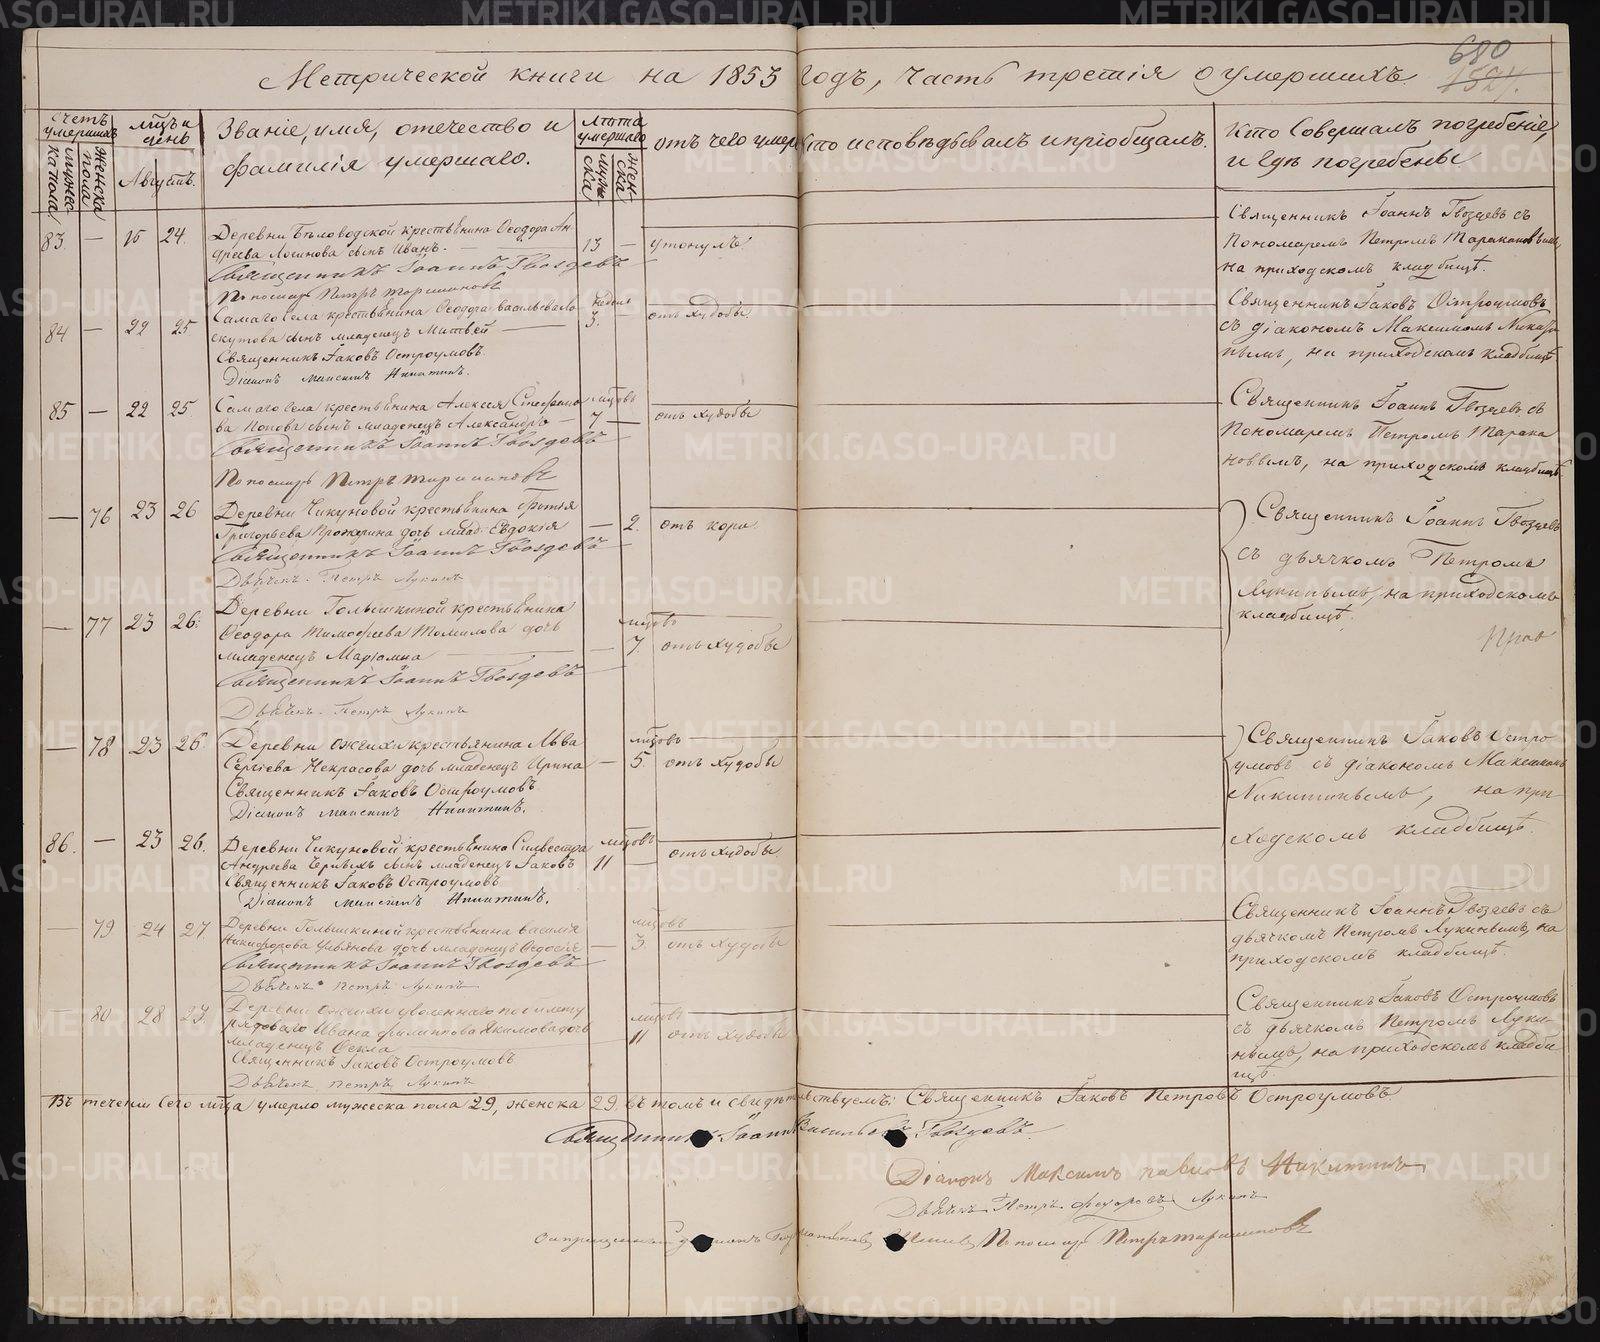 Метрической книги на 1853 годъ, часть третія о умершихъ.
680
Счетъ умершихъ
мужеска пола
женска пола
Мѣсяцъ и день
Августъ.
Званіе, имя, отечество и
фамилія умершаго.
Лѣта умершаго
мужеска
женска
отъ чего умеръ
кто исповѣдывалъ и пріобщалъ.
Кто Совершалъ погребеніе,
и гдѣ погребены
83. — 15 24.
Деревни Бѣловодской крестьянина Ѳеодора Ан-
дреева Логинова сынъ Иванъ. —
13 —
утонулъ.
Священникъ Іоаннъ Гвоздевъ
Пономарь Петръ Таракановъ
Священникъ Іоаннъ Гвоздевъ съ
Пономаремъ Петромъ Таракановымъ,
на приходскомъ кладбищѣ.
84 — 22 25
Самаго Села крестьянина Ѳеодора Васильева Ло-
скутова сынъ младенецъ Матвей —
недѣль
3. —
отъ худобы
Священникъ Іаковъ Остроумовъ.
Діаконъ Максимъ Никитинъ.
Священникъ Іаковъ Остроумовъ
съ діакономъ Максимомъ Никити-
нымъ, на приходскомъ кладбищѣ
85 — 22 25
Самаго Села крестьянина Алексея Стефано-
ва Попова сынъ младенецъ Александръ —
мѣсяцовъ
7 —
отъ худобы
Священникъ Іоаннъ Гвоздевъ
Пономарь Петръ Таракановъ
Священникъ Іоаннъ Гвоздевъ съ
Пономаремъ Петромъ Тарака
новымъ, на приходскомъ кладбищѣ
— 76 23 26
Деревни Чикуновой крестьянина
Григорьева дочь млад. Евдокія
— 2.
отъ кори
Священникъ Іоаннъ Гвоздевъ
Дьячекъ Петръ Лукинъ
Священникъ Іоаннъ Гвоздевъ
съ дьячкомъ Петромъ
Лукинымъ, на приходскомъ
кладбищѣ.
— 77 23 26.
Деревни Голышкиной крестьянина
Ѳеодора Тимофеева Томилова дочь
младенецъ Маріамна —
мѣсяцовъ
— 7.
отъ худобы
Священникъ Іоаннъ Гвоздевъ
Дьячекъ Петръ Лукинъ
— 78 23 26.
Деревни Ожгихи крестьянина Льва
Сергіева Некрасова дочь младенецъ Ирина
мѣсяцовъ
— 5.
отъ худобы
Священникъ Іаковъ Остроумовъ
Діаконъ Максимъ Никитинъ.
Священникъ Іаковъ Остро
умовъ съ діакономъ Максимомъ
Никитинымъ, на при-
ходскомъ кладбищѣ.
86. — 23 26.
Деревни Чикуновой крестьянина Силвестра
Андреева сынъ младенецъ Іаковъ
мѣсяцовъ
11 —
отъ худобы
Священникъ Іаковъ Остроумовъ
Діаконъ Максимъ Никитинъ.
— 79 24 27.
Деревни Голышкиной крестьянина Василія
Никифорова Ульянова дочь младенецъ Ѳедосія
мѣсяцовъ
— 3.
отъ худобы
Священникъ Іоаннъ Гвоздевъ
Дьячекъ Петръ Лукинъ
Священникъ Іоаннъ Гвоздевъ съ
дьячкомъ Петромъ Лукинымъ, на
приходскомъ кладбищѣ.
— 80 28 27.
Деревни Ожгихи уволеннаго по билету
рядоваго Ивана Филиппова Якимова дочь
младенецъ Ѳекла —
мѣсяцовъ
11
отъ худобы
Священникъ Іаковъ Остроумовъ
Дьячекъ Петръ Лукинъ
Священникъ Іаковъ Остроумовъ
съ дьячкомъ Петромъ Луки-
нымъ, на приходскомъ кладби
щѣ.
Въ теченіи Сего мѣсяца умерло мужеска пола 29, женска 29. въ томъ и свидѣтельствуемъ: Священникъ Іаковъ Петровъ Остроумовъ.
Священникъ Іоаннъ Васильевъ Гвоздевъ.
Діаконъ Максимъ Павловъ Никитинъ
Дьячекъ Петръ Ѳедоровъ Лукинъ
Пономарь Петръ Таракановъ
METRIKI.GASO-URAL.RU